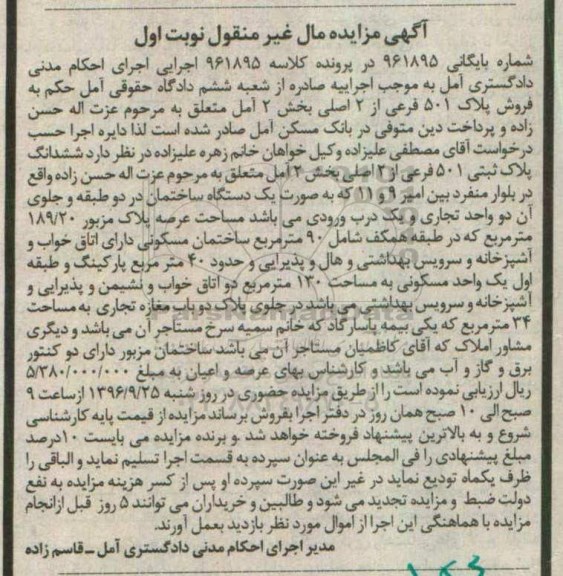 آگهی مزایده مال غیر منقول نوبت اول
شماره بایگانی ۹۶۱۸۹۵ در پرونده کلاسه ۹۶۱۸۹۵ اجرایی اجرای احکام مدنی
دادگستری آمل به موجب اجراییه صادره از شعبه ششم دادگاه حقوقی آمل حکم به
فروش پلاک ۵۰۱ فرعی از ۲ اصلی بخش ۲ آمل متعلق به مرحوم عزت اله حسن
زاده و پرداخت دین متوفی در بانک مسکن آمل صادر شده است لذا دایره اجرا حسب
درخواست آقای مصطفی علیزاده وکیل خواهان خانم زهره علیزاده در نظر دارد ششدانگ
پلاک ثبتی ۵۰۱ فرعی از ۲ اصلی بخش ۲ آمل متعلق به مرحوم عزت اله حسن زاده واقع
در بلوار منفرد بین امیر ۹ و ۱۱ که به صورت یک دستگاه ساختمان در دو طبقه و جلوی
آن دو واحد تجاری و یک درب ورودی می باشد مساحت عرصه پلاک مزبور ۱۸۹/۲۰
مترمربع که در طبقه همکف شامل ۹۰ مترمربع ساختمان مسکونی دارای اتاق خواب و
آشپزخانه و سرویس بهداشتی و هال و پذیرایی و حدود ۴۰ متر مربع پارکینگ و طبقه
اول یک واحد مسکونی به مساحت ۱۳۰ مترمربع دو اتاق خواب و نشیمن و پذیرایی و
آشپزخانه و سرویس بهداشتی می باشد در جلوی پلاک دو باب مغازه تجاری به مساحت
۳۴ مترمربع که یکی بیمه پاسارگاد که خانم سمیه سرخ مستاجر آن می باشد و دیگری
مشاور املاک که آقای کاظمیان مستاجر آن می باشد ساختمان مزبور دارای دو کنتور
برق و گاز و آب می باشد و کارشناس بهای عرصه و اعیان به مبلغ ۵/۳۸۰/۰۰۰/۰۰۰
ریال ارزیابی نموده است را از طریق مزایده حضوری در روز شنبه ۱۳۹۶/۹/۲۵ از ساعت ۹
صبح الی ۱۰ صبح همان روز در دفتر اجرا بفروش برساند مزایده از قیمت پایه کارشناسی
شروع و به بالاترین پیشنهاد فروخته خواهد شد .و برنده مزایده می بایست ۱۰درصد
مبلغ پیشنهادی را فی المجلس به عنوان سپرده به قسمت اجرا تسلیم نماید و الباقی را
ظرف یکماه تودیع نماید در غیر این صورت سپرده او پس از کسر هزینه مزایده به نفع
دولت ضبط و مزایده تجدید می شود و طالبین و خریداران می توانند ۵ روز قبل ازانجام
مزایده با هماهنگی این اجرا از اموال مورد نظر بازدید بعمل آورند.
مدیر اجرای احکام مدنی دادگستری آمل ـ قاسم زاده